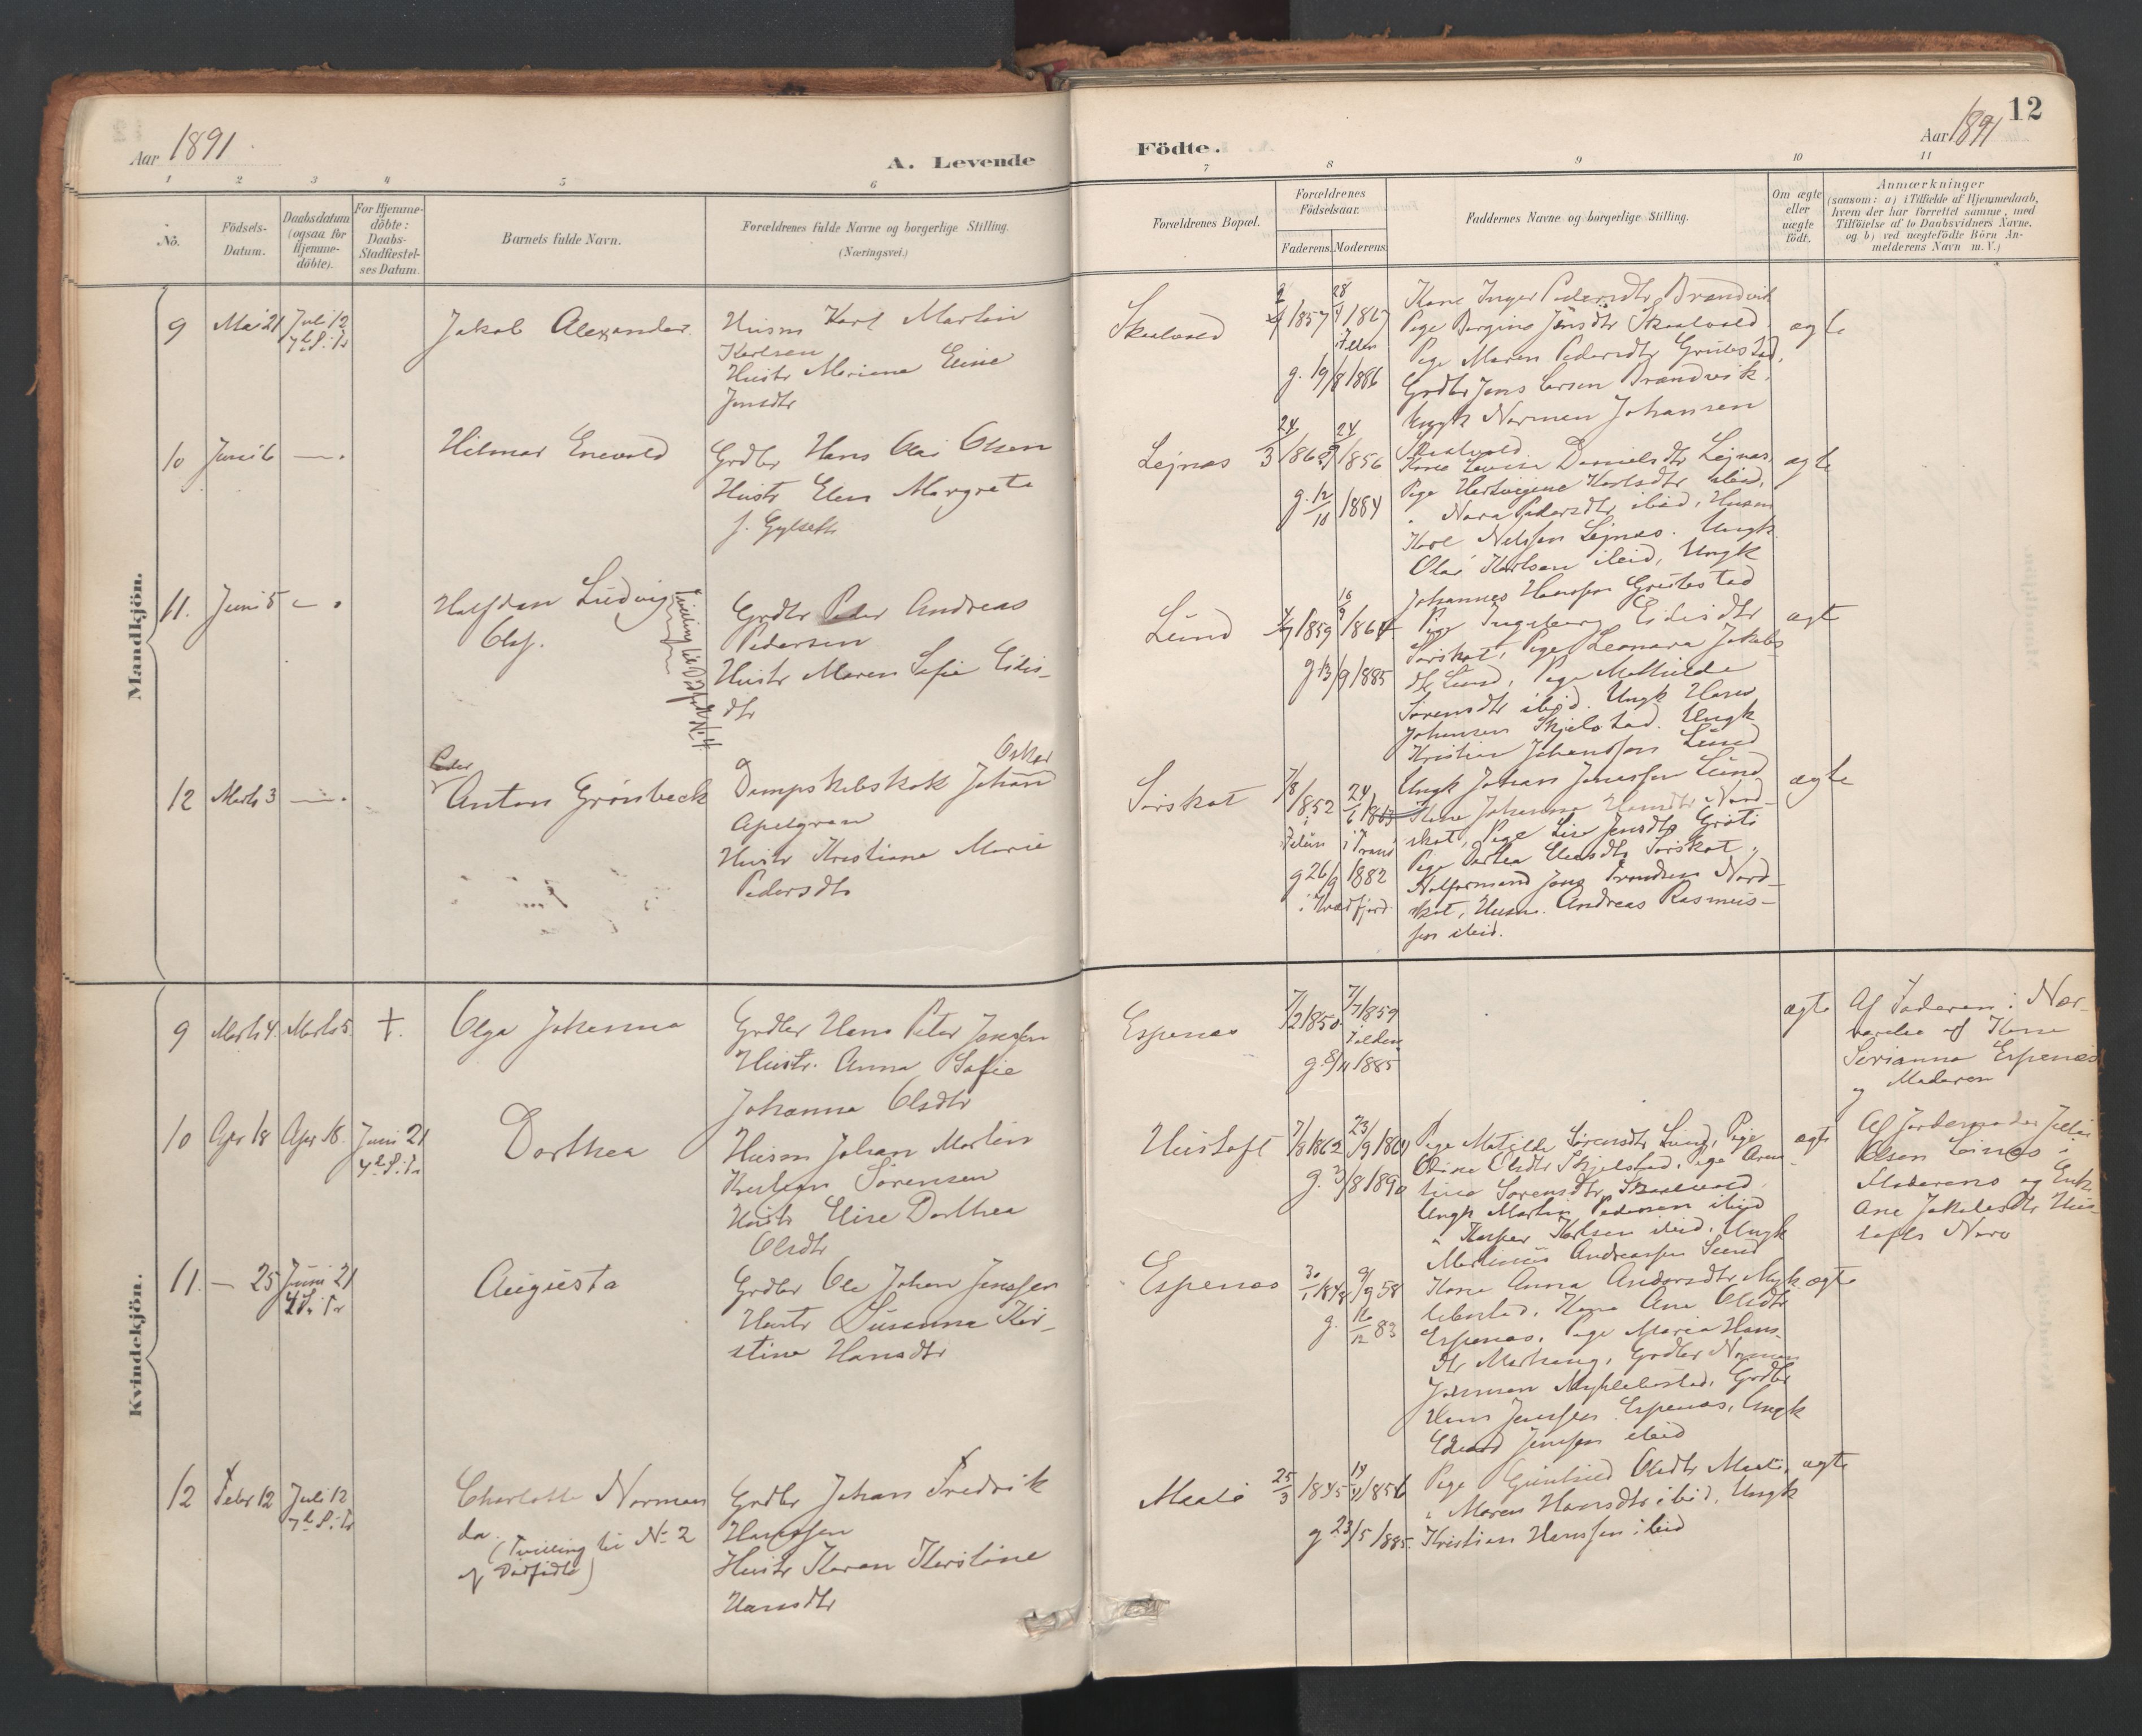 Aar 1891
A. Levende
Födte.
Aar 1891
12
1 2 3 4 5 6
7 8 9 10 11
Nô.
Födsels-
Datum.
Daabsdatum
(ogsaa for
Hjemme-
döbte).
For Hjemme-
döbte:
Daabs-
Stadfæstel-
ses Datum.
Barnets fulde Navn.
Forældrenes fulde Navne og borgerlige Stilling.
(Næringsvei.)
Forældrenes Bopæl.
Forældrenes
Födselsaar.
Faderens.
Moderens.
Faddernes Navne og borgerlige Stilling.
Om ægte
eller
uægte
födt.
Anmærkninger
(saasom: a) i Tilfælde af Hjemmedaab,
hvem der har forrettet samme, med
Tilföielse af to Daabsvidners Navne.
og b) ved uægtefödte Börn An-
melderens Navn m. V.)
Mandkjön.
9 Mai 21 Juli 12
7de S. i Tr
Jakob Alexander
Husm Karl Martin
Karlsen
Hustr Mariane Eline
Jensdtr
Skalvold
1857 1867
g. 19/8 1886
Kone Inger Pedersdtr Brændvik
Pige Bergine Jensdtr Skalvold
Pige Maren Pedersdtr Grütestad,
Grdbr Jens Larsen Brændvik,
Ungk Normen Johansen
Skalvold
ægte
10 Juni 6 —.
Hilmar Enevold
Grdbr Hans Olai Olsen
Hustr Elen Margrete
f. Gylseth
Lejnæs
24/3 186 24 1856
g. 12/10 1884
Kone Lovise Danielsdtr Lejnæs,
Pige Hertvigine Karlsdtr ibid,
" Nora Pedersdtr ibid, Husm
Karl Nilssen Lejnæs. Ungk
Olai Karlsen ibid, Ungk
Johannes Hansen Grütestad
ægte
11. Juni 5 —.
Halfdan Ludvig
Olaf.
Tvilling til Dødfødt N. 4
Grdbr Peder Andreas
Pedersen
Hustr Maren Sofie Eidis-
dtr
Lund
1859 16/9 1864
g 13/9 1885
Pige Ingeborg Eidisdtr
Sørskot, Pige Leonara Jakobs-
dtr Lund, Pige Mathilde
Sørensdtr ibid. Ungk Hans
Johansen Skjelstad. Ungk
Kristian Johanssen Lund
ægte
12 Marts 3 —.
Peder
Anton Grønbeck
Dampskibskok Johan Oskar
Apelgren
Hustr Kristiane Marie
Pedersdtr
Sørskot
7/8 1852 24/6 1863
g 26/9 1882
i Kvædfjord
Ungk Johan Jenssen Lund
Kone Johanna Hansdtr Nord-
skot, Pige Lise Jensdtr Grøti
Pige Dortea Eliasdtr Sørskot,
Nolformand Jens Trondsen Nord-
skot, Husm. Andreas Rasmus-
sen ibid.
ægte
Kvindekjön.
9 Marts 4. Marts 5. †.
Olga Johanna
Grdbr Hans Peter Jenssen
Hustr. Anna Sofie
Johanna Olsdtr
Espenes
7/2 1850. 7/7 1859
g. 8/11 1885
ægte
Af Faderen i Nær-
værelse af Kone
Serianna Espenes
og Moderen
10 Apr 18 Apr 18. Juni 21
4de S. i Tr
Dorthea
Husm Johan Martin
Sørensen
Hustr Elise Dorthea
Olsdtr
Hustoft
7/8 1862 23/9 1864
g. 3/8 1890
Pige Matilde Sørensdtr Lund, Pige
Olina Olsdtr Skjelstad, Pige Aren-
tine Sørensdtr Skalvold
Ungk Martin Pedersen ibid
" Kasper Karlsen ibid, Ungk
Martinus Andreassen Lund
ægte
Af Jordemoder Julie
Olsen Leines i
Moderens og Enke
Ane Jakobsdtr Hus-
tofts Nærv
11. — 25 Juni 21
4 S. i Tr
Augusta
Grdbr Ole Johan Jenssen
Hustr Susanna Kir-
stine Hansdtr
Espenæs
30/1 1848 9/9 58
g. 16/12 83
Kone Anna Andersdtr Myk-
lebostad, Kone Ane Olsdtr
Espenæs, Pige Maria Hans-
dtr Marhaug, Grdbr Normen
Johnsen Myklebostad, Grdbr
Hans Jenssen Espenæs, Ungk
Edvard Jenssen ibid
ægte
12 Febr 12 Juli 12
7de S. i Tr
Charlotte Norman
da
(Tvilling til N. 2
af Dødfødte)
Grdbr Johan Fredrik
Hanssen
Hustr Karen Kirstine
Hansdtr
Maalø
25/3 1845 19/11 1856
g 23/5 1885.
Pige Gunhild Olsdtr Maalø,
" Maren Hansdtr ibid, Ungk
Kristian Hanssen ibid
ægte